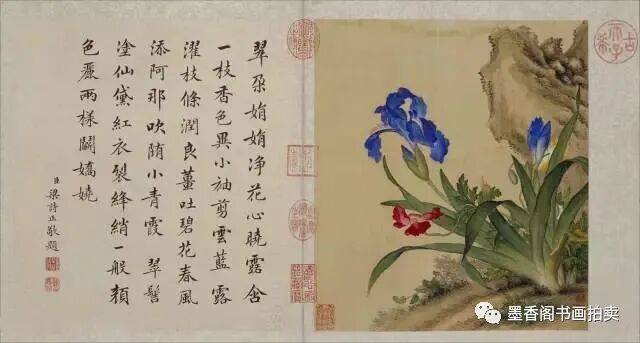 翠朶娟娟净花心曉露含
一枝香色異小袖剪雲藍露
濯枝條潤良薑吐碧花春風
添阿那吹小青霞 翠髻
塗仙黛紅衣裂絳綃一般顏
色麗兩樣鬬嬌嬈
臣梁詩正敬題
古希天子
墨香阁书画拍卖